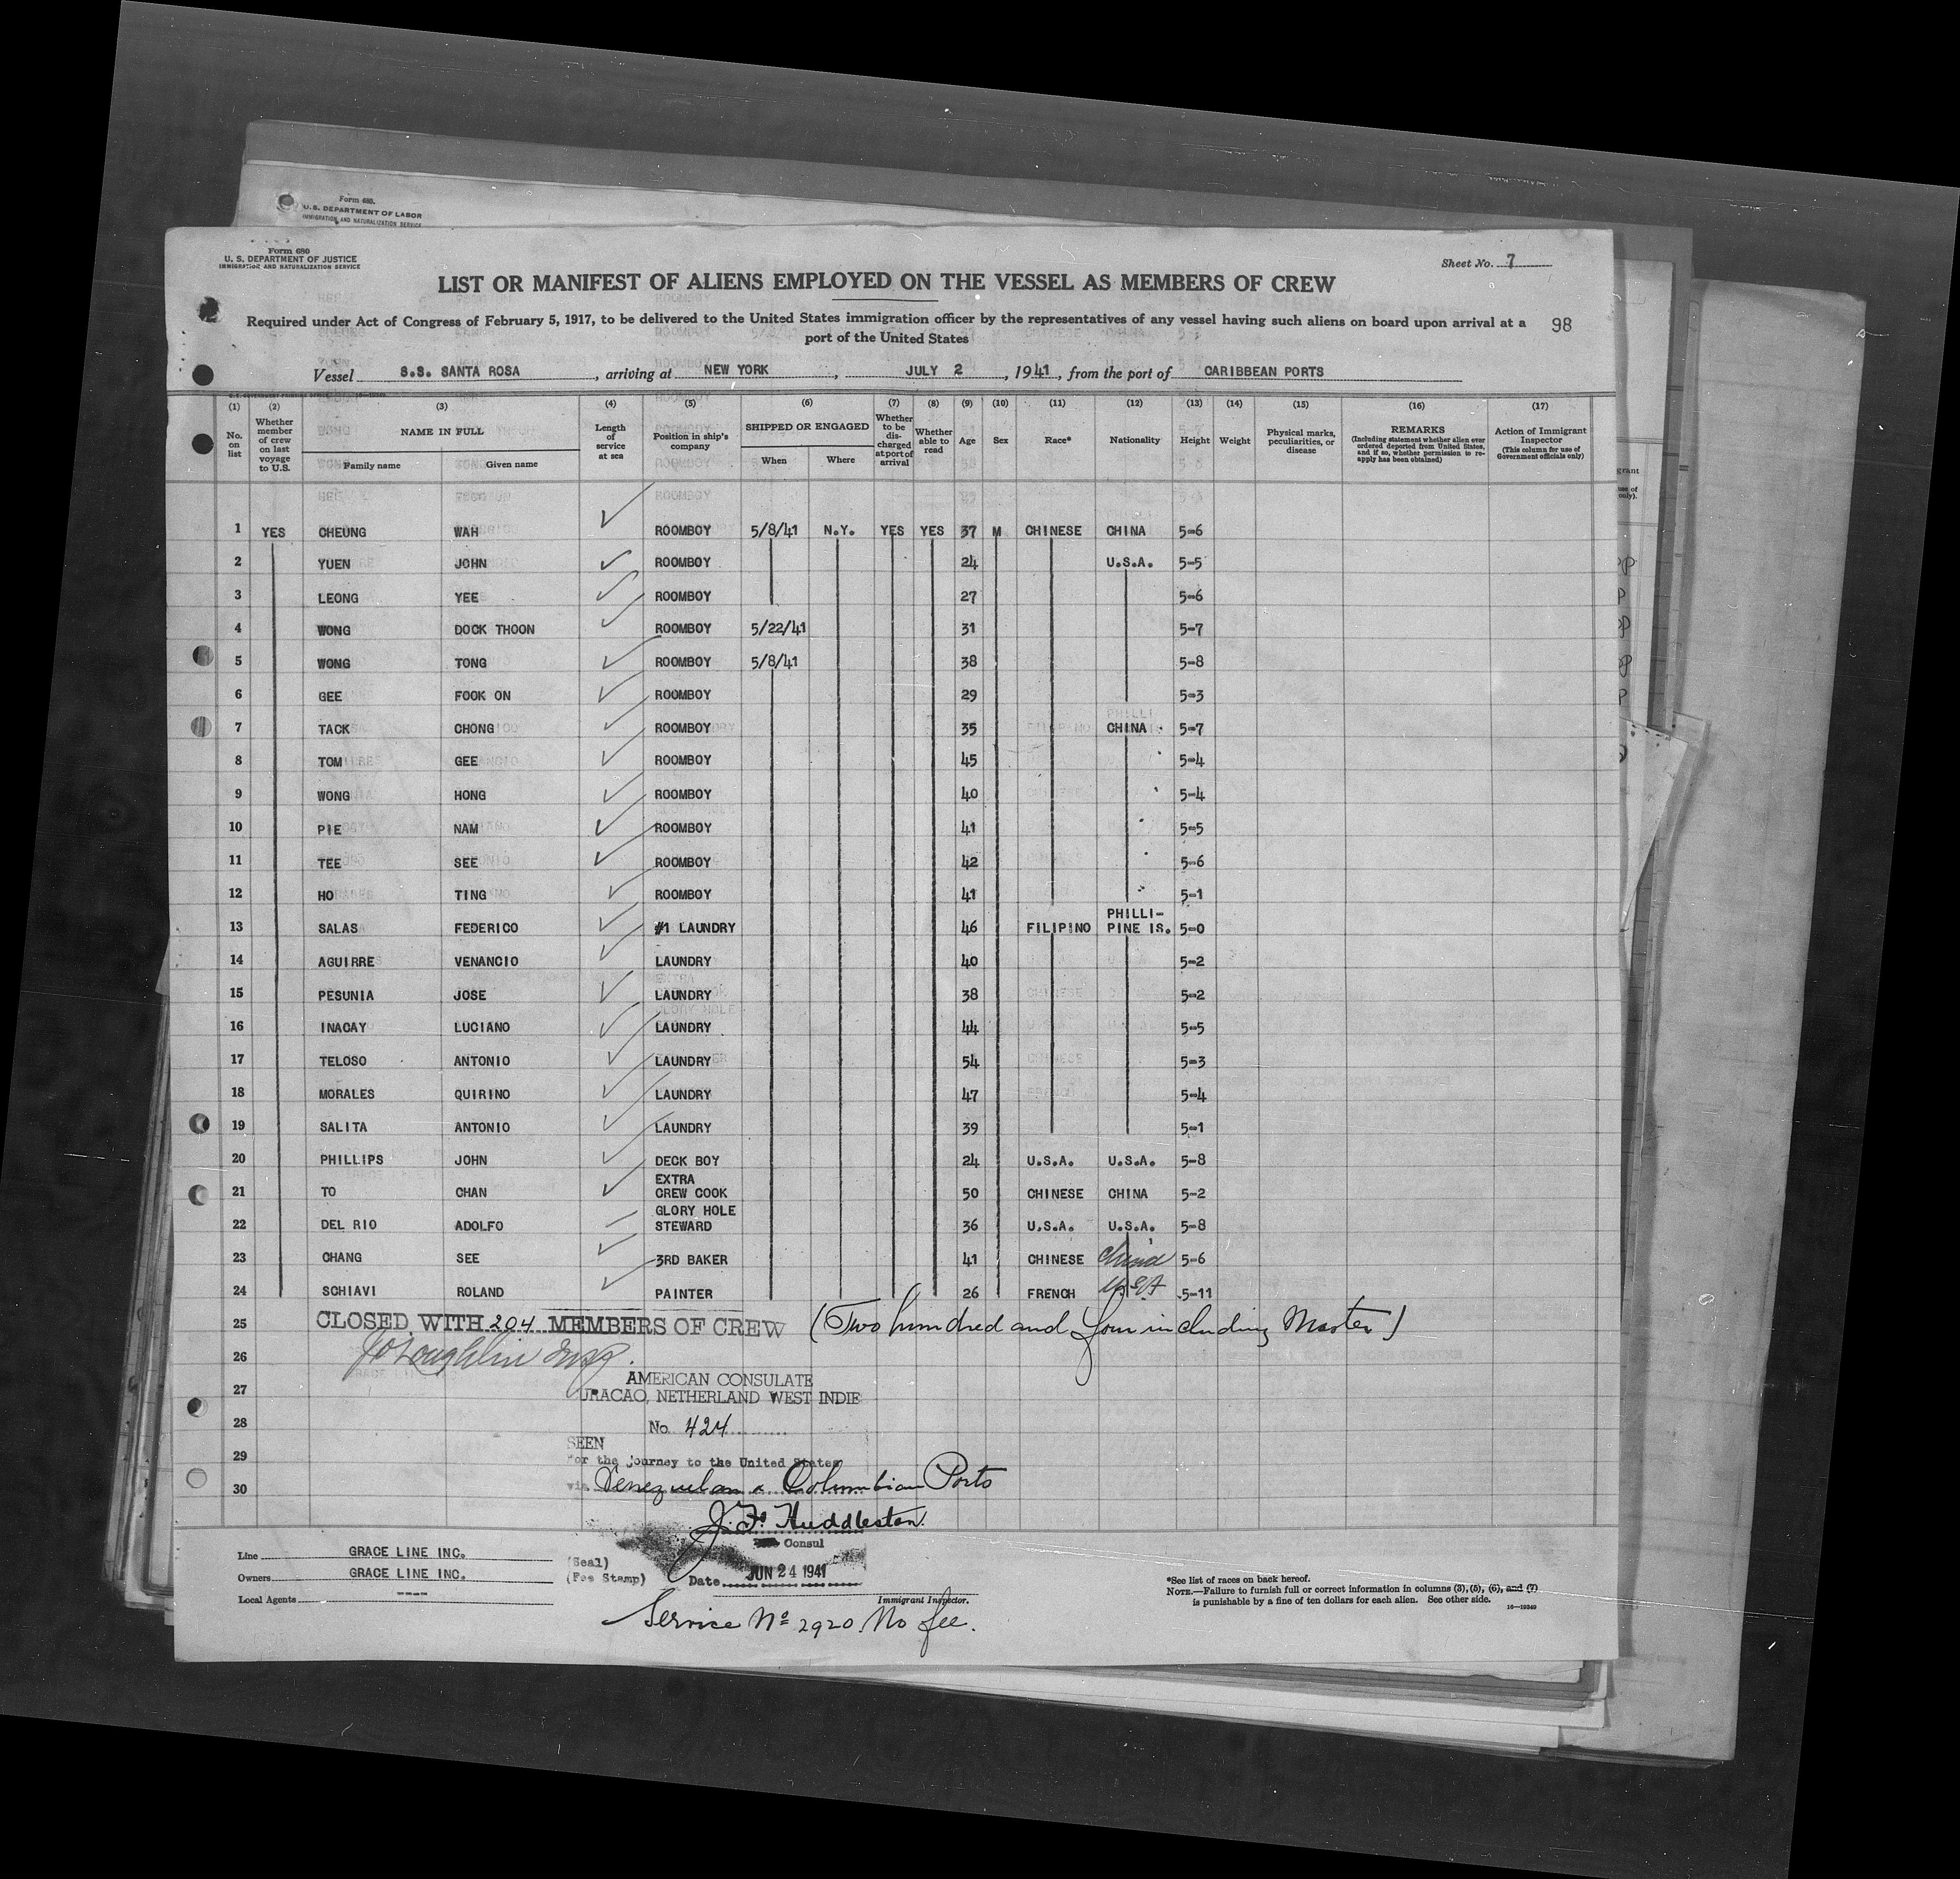 Form 680.
U.S. DEPARTMENT OF LABOR
IMMIGRATION AND NATURALIZATION SERVICE
Form 680
U. S. DEPARTMENT OF JUSTICE
IMMIGRATION AND NATURALIZATION SERVICE
Sheet No. 7
LIST OR MANIFEST OF ALIENS EMPLOYED ON THE VESSEL AS MEMBERS OF CREW
Required under Act of Congress of February 5, 1917, to be delivered to the United States immigration officer by the representatives of any vessel having such aliens on board upon arrival at a
port of the United States
98
Vessel S.S. SANTA ROSA, arriving at NEW YORK, JULY 2, 1941, from the port of CARIBBEAN PORTS
(1) (2) (3) (4) (5) (6) (7) (8) (9) (10) (11) (12) (13) (14) (15) (16) (17)
No. on list
Whether member of crew on last voyage to U.S.
NAME IN FULL
Family name Given name
Length of service at sea
Position in ship's company
SHIPPED OR ENGAGED
When Where
Whether to be discharged at port of arrival
Whether able to read
Age
Sex
Race*
Nationality
Height
Weight
Physical marks, peculiarities, or disease
REMARKS
(Including statement whether alien ever ordered deported from United States, and if so, whether permission to reapply has been obtained)
Action of Immigrant Inspector
(This column for use of Government officials only)
1 YES CHEUNG WAH ROOMBOY 5/8/41 N.Y. YES YES 37 M CHINESE CHINA 5-6
2 YUEN JOHN ROOMBOY 24 U.S.A. 5-5
3 LEONG YEE ROOMBOY 27 5-6
4 WONG DOCK THOON ROOMBOY 5/22/41 31 5-7
5 WONG TONG ROOMBOY 5/8/41 38 5-8
6 GEE FOOK ON ROOMBOY 29 5-3
7 TACK CHONG ROOMBOY 35 CHINA 5-7
8 TOM GEE ROOMBOY 45 5-4
9 WONG HONG ROOMBOY 40 5-4
10 PIE NAM ROOMBOY 41 5-5
11 TEE SEE ROOMBOY 42 5-6
12 HO TING ROOMBOY 41 5-1
13 SALAS FEDERICO #1 LAUNDRY 46 FILIPINO PHILLI-PINE IS. 5-0
14 AGUIRRE VENANCIO LAUNDRY 40 5-2
15 PESUNIA JOSE LAUNDRY 38 5-2
16 INACAY LUCIANO LAUNDRY 44 5-5
17 TELOSO ANTONIO LAUNDRY 54 5-3
18 MORALES QUIRINO LAUNDRY 47 5-4
19 SALITA ANTONIO LAUNDRY 39 5-1
20 PHILLIPS JOHN DECK BOY 24 U.S.A. U.S.A. 5-8
21 TO CHAN EXTRA CREW COOK 50 CHINESE CHINA 5-2
22 DEL RIO ADOLFO GLORY HOLE STEWARD 36 U.S.A. U.S.A. 5-8
23 CHANG SEE 3RD BAKER 41 CHINESE China 5-6
24 SCHIAVI ROLAND PAINTER 26 FRENCH USA 5-11
25 CLOSED WITH 204 MEMBERS OF CREW (Two hundred and four including Master)
26 JO'Loughlin Insp.
27 AMERICAN CONSULATE
URACAO, NETHERLAND WEST INDIE
28 No. 424
29 SEEN
for the journey to the United States
30 via Venezuelan & Columbian Ports
J. F. Huddleston.
Consul
Line GRACE LINE INC.
Owners GRACE LINE INC.
Local Agents ----
(Seal)
(Fee Stamp)
Date JUN 24 1941
Immigrant Inspector.
Service No 2920. No fee.
*See list of races on back hereof.
NOTE.—Failure to furnish full or correct information in columns (3), (5), (6), and (7)
is punishable by a fine of ten dollars for each alien. See other side.
16—19349